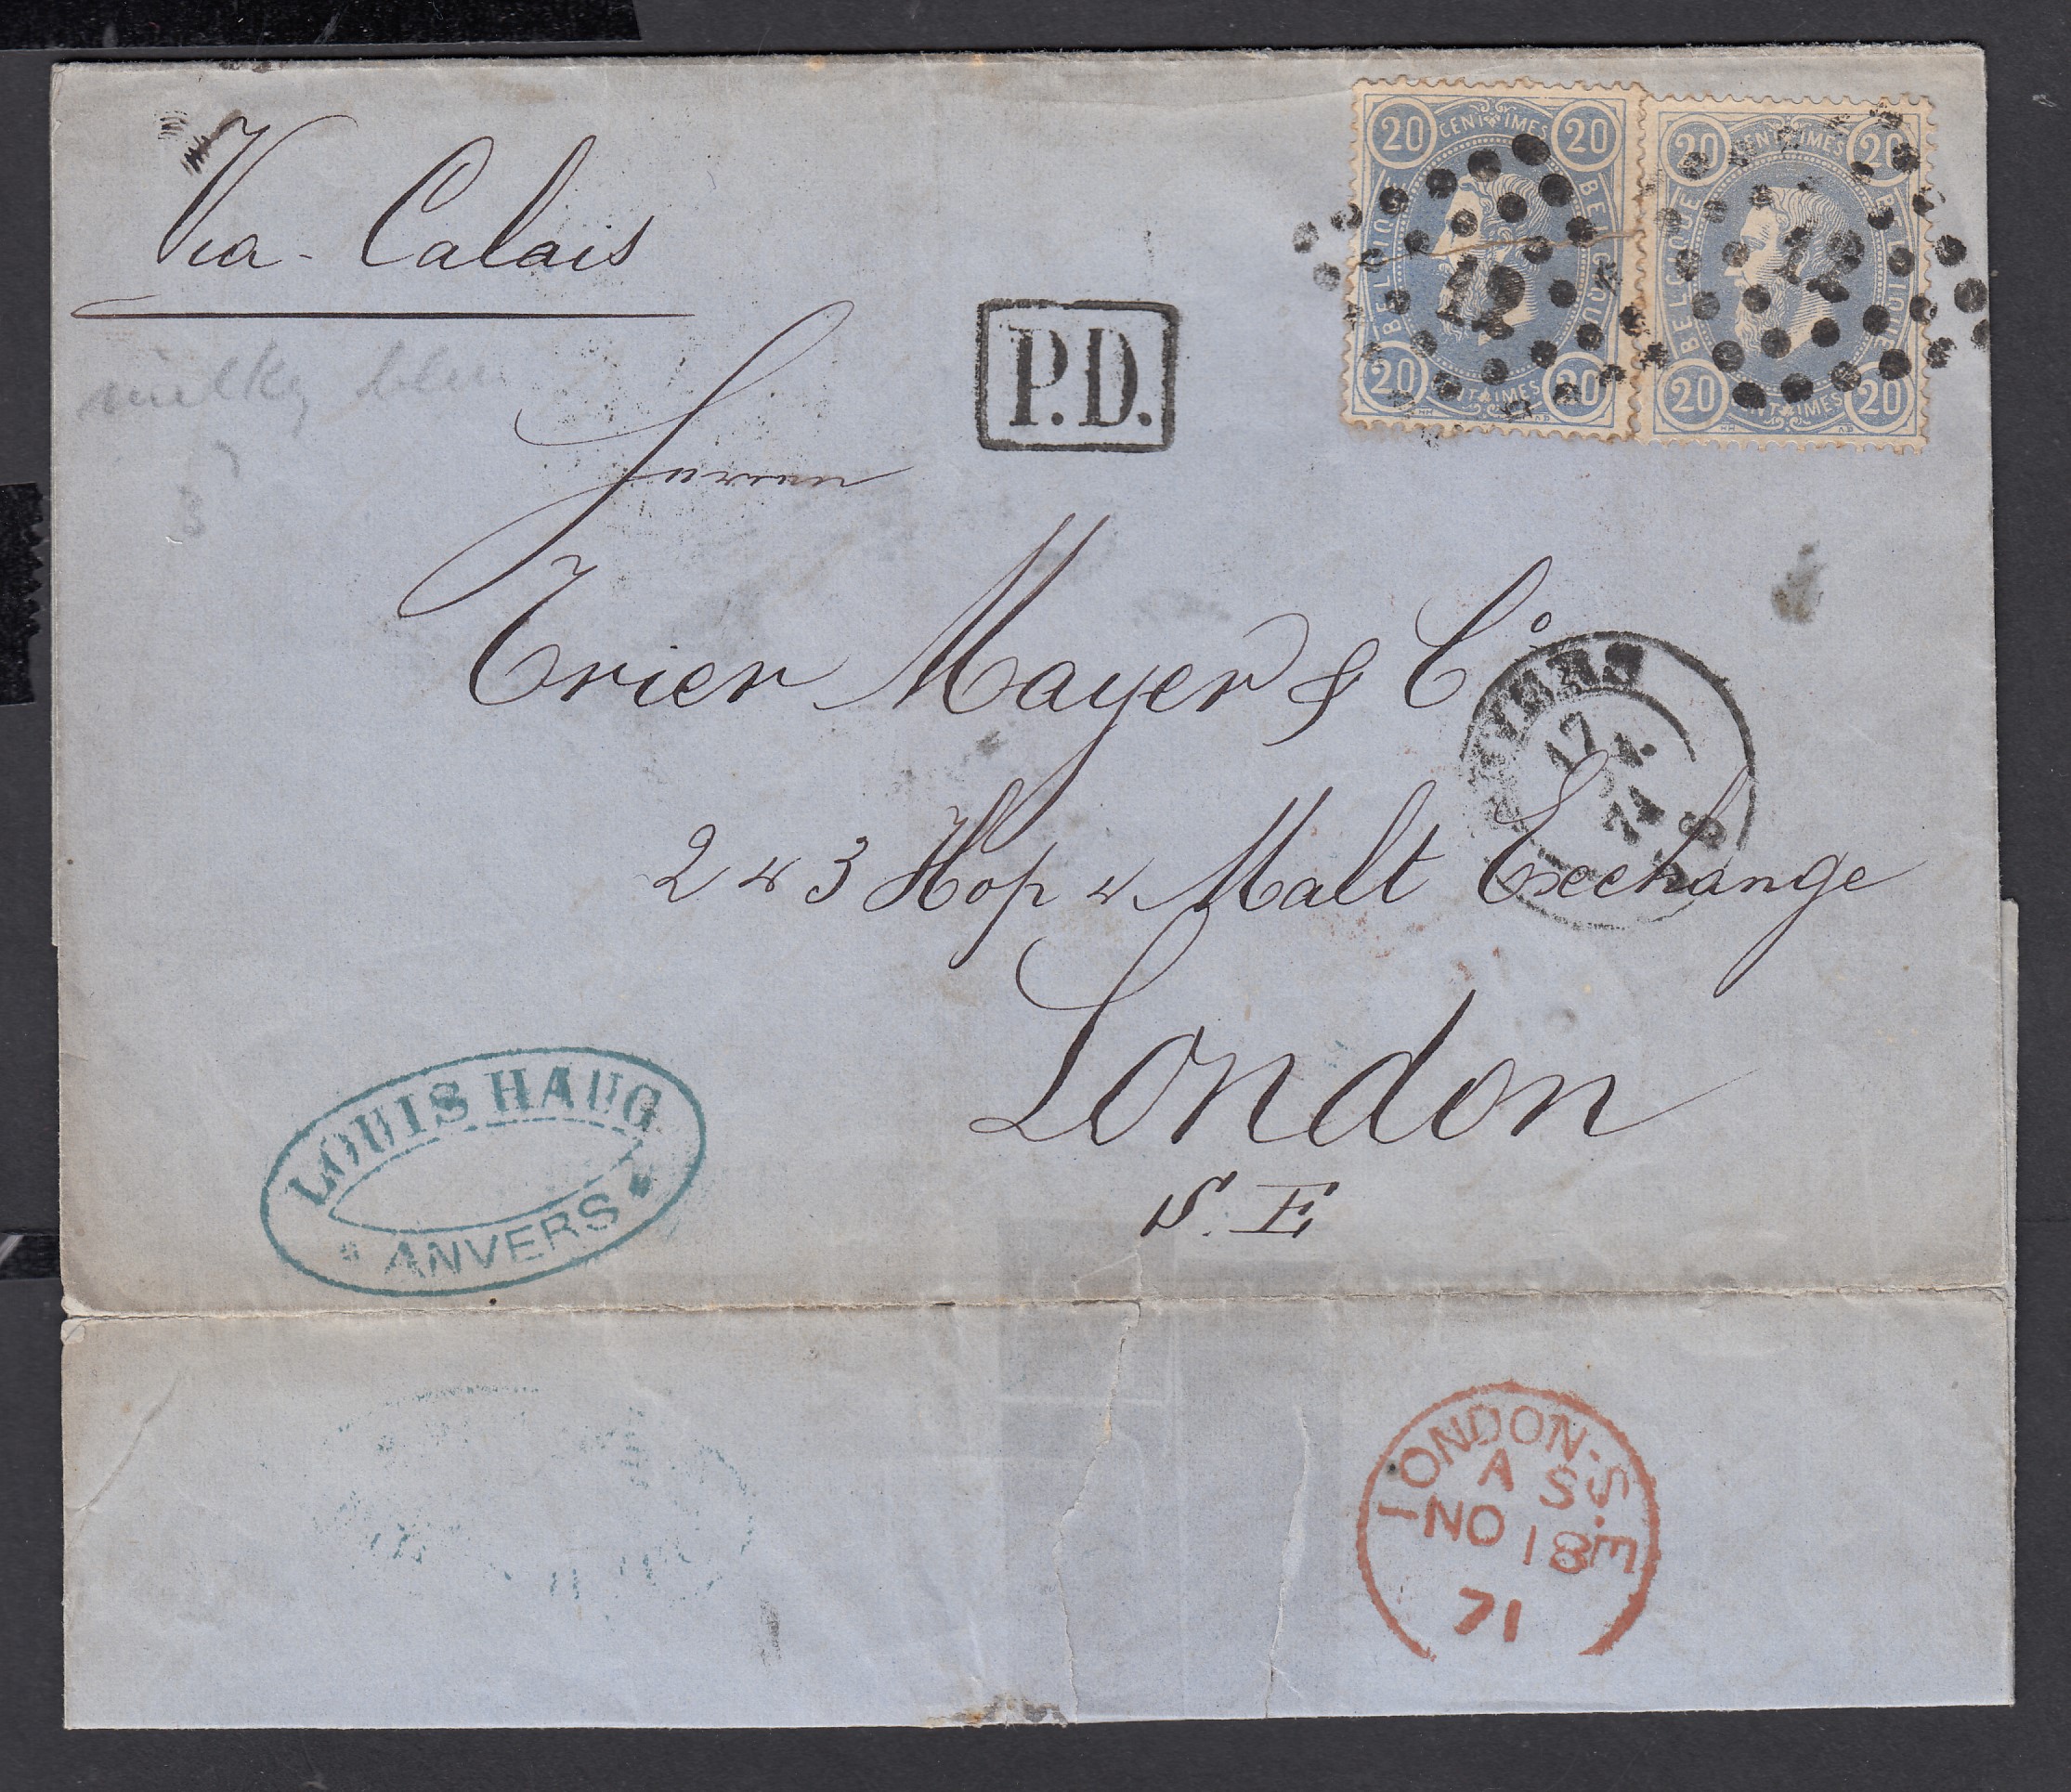 Via Calais
milky bleu
3
P.D.
20 CENTIMES 20
BELGIQUE BELGIQUE
12
20 CENTIMES 20
20 CENTIMES 20
BELGIQUE BELGIQUE
12
20 CENTIMES 20
Herren
Trier Mayer & Co
ANVERS
17
71
2 & 3 Hop & Malt Exchange
London
S. E
LOUIS HAUG
ANVERS
LONDON-S.E
A S
NO 18
71